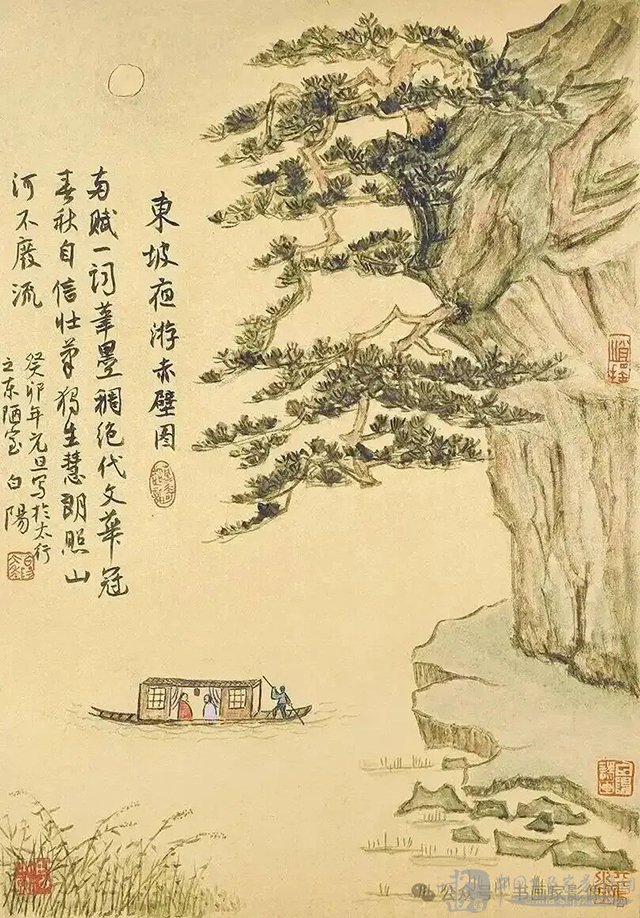 東坡夜游赤壁图
两赋一词筆墨稠绝代文華冠
春秋自信壮独生慧朗照山
河不廢流
癸卯年元旦写於太行
之东陋室 白陽
公众号